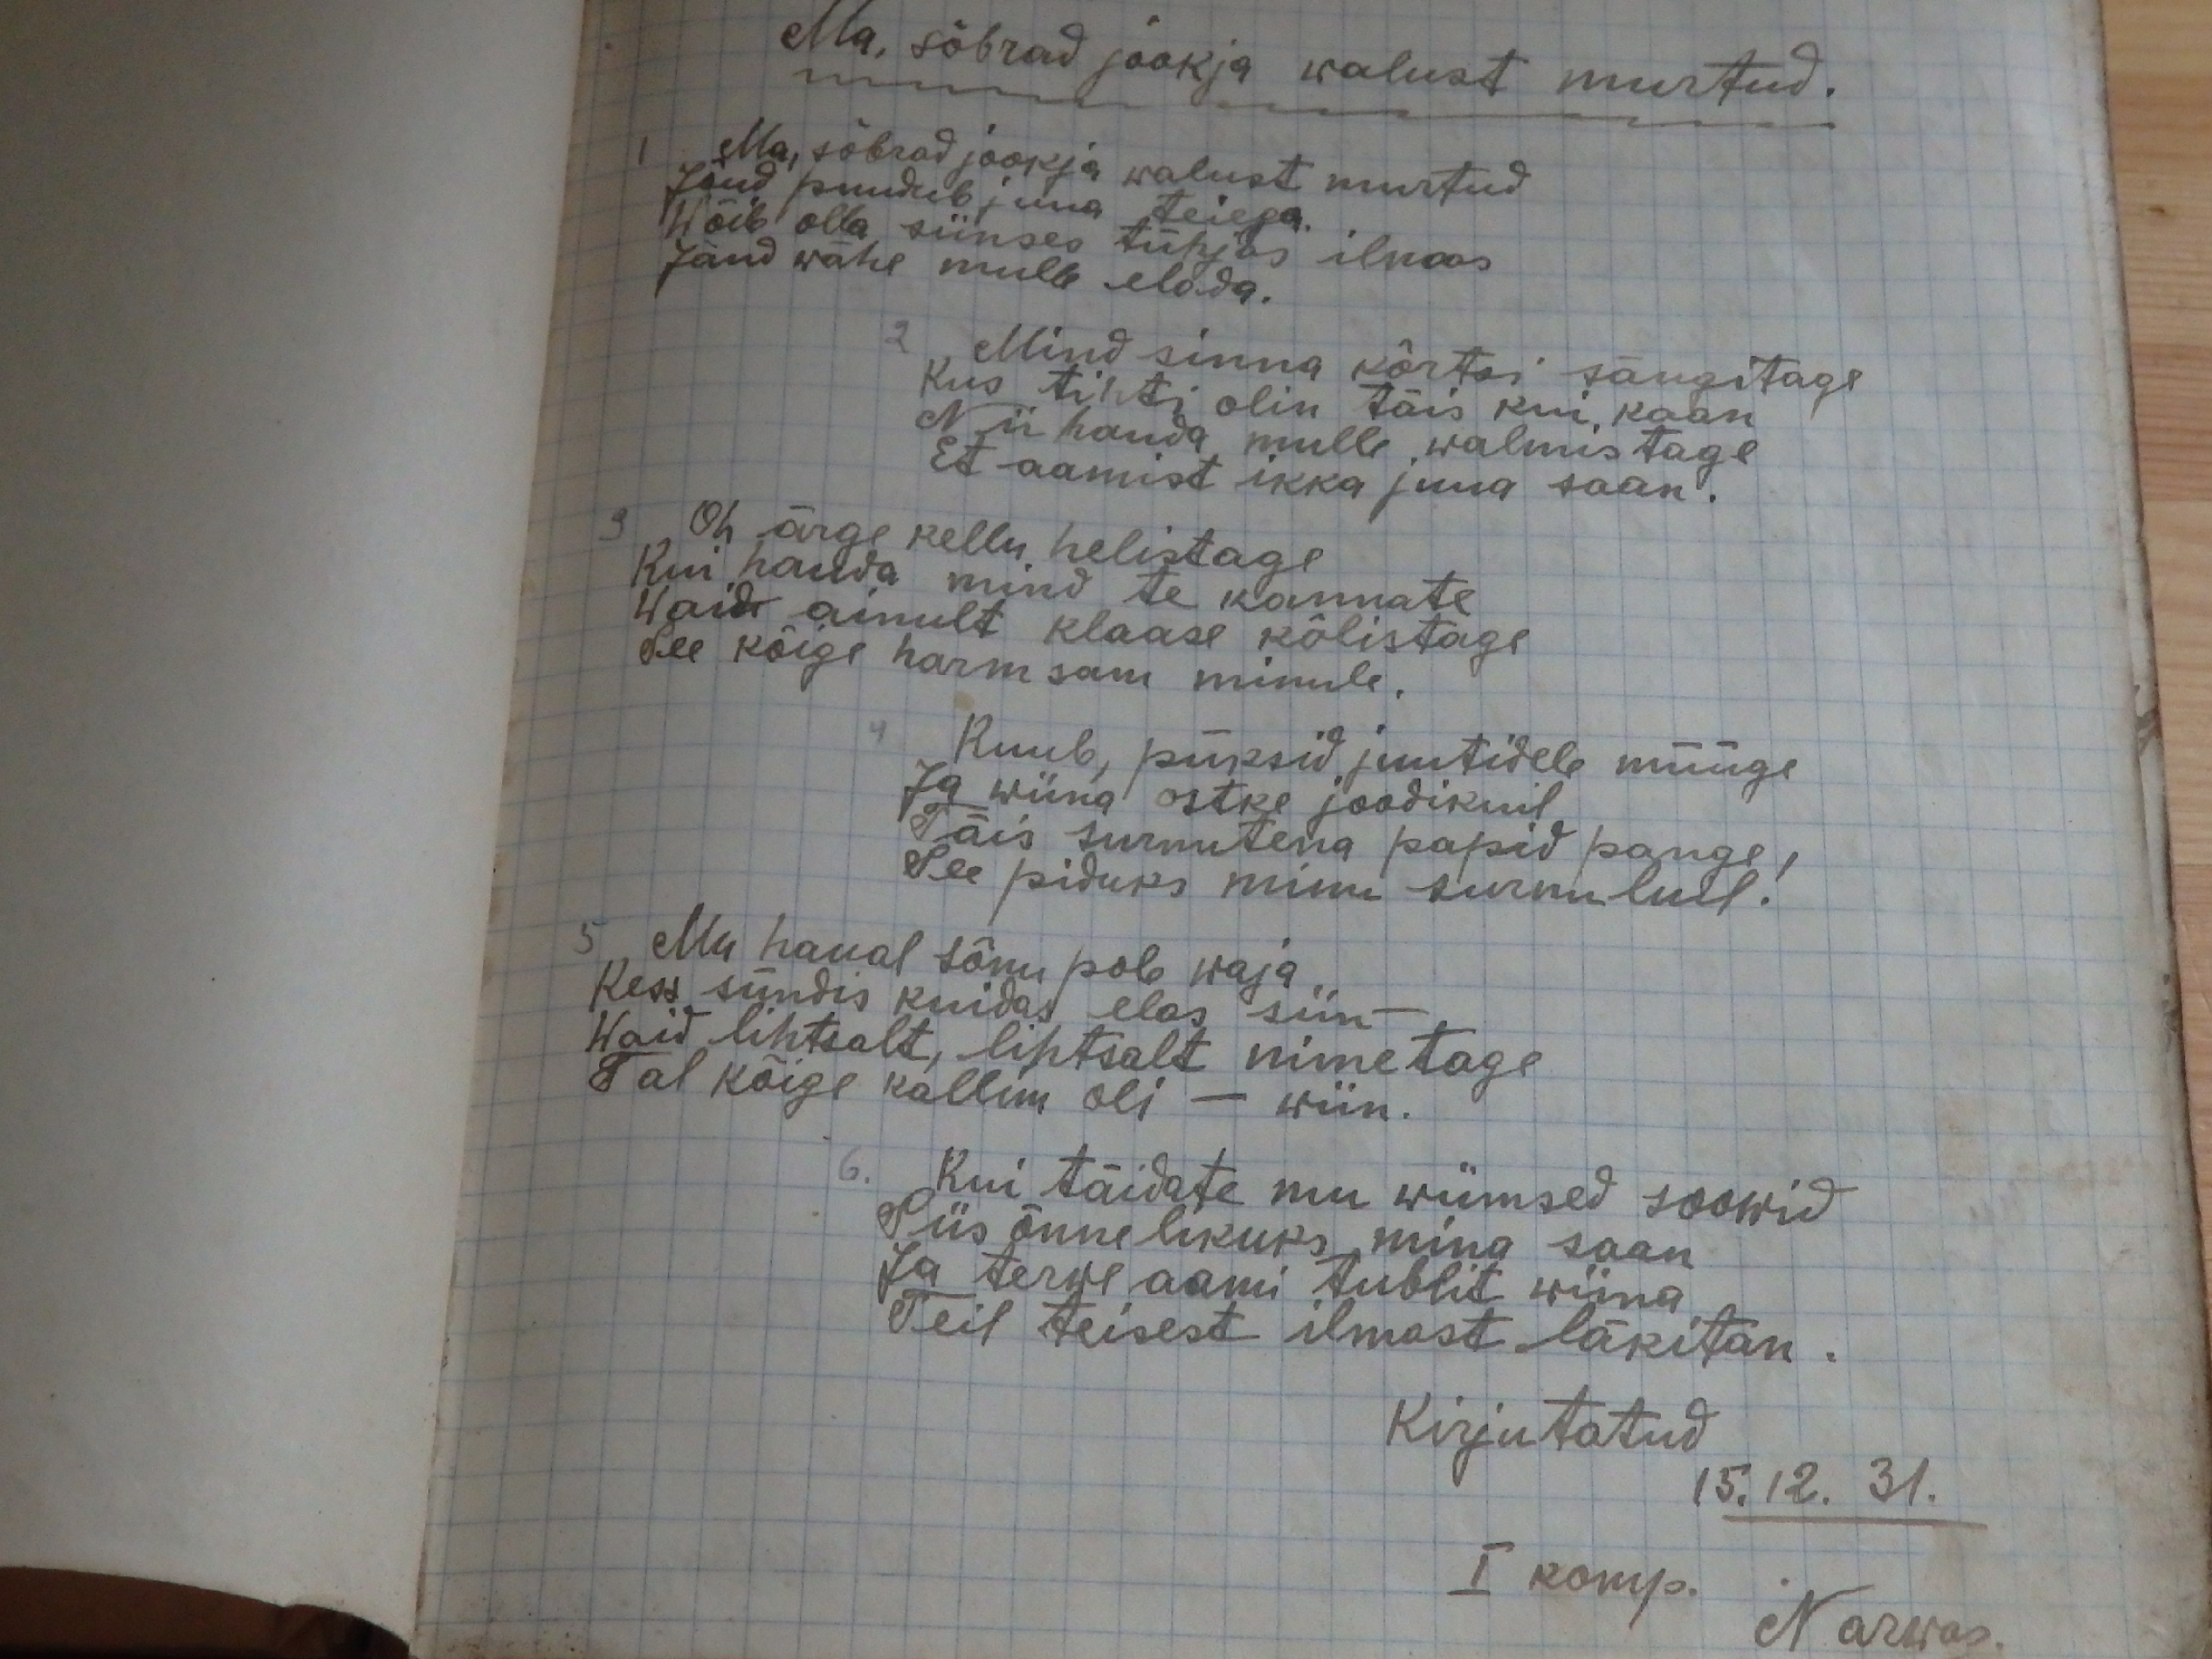 Ma, sõbrad jookja walust murtud.
1 Ma, sõbrad jookja walust murtud
Jõud puudub juua teiega.
Wõib olla siinses tühjas ilmas
Jänd wähe mulle elada.
2 Mind sinna kõrtsi sängitage
Kus tihti olin täis kui kaan
Nii hauda mulle walmistage
Et aamist ikka juua saan.
3 Oh ärge kellu helistage
Kui hauda mind te kannate
Waid ainult klaase kõlistage
See kõige harmsam minule.
4 Kuub, püksid juutidele müüge
Ja wiina ostke joodikuil
Täis surnutena papid pange!
See piduks minu surnuluil!
5 Mu haual sõnu pole waja
Kess sündis kuidas elas siin —
Waid lihtsalt, lihtsalt nimetage
Tal kõige kallim oli — wiin.
6. Kui täidate mu wiimsed soowid
Siis õnnelikuks mina saan
Ja terwe aami tublit wiina
Teil teisest ilmast läkitan.
Kirjutatud
15.12.31.
I komp.
Narwas.